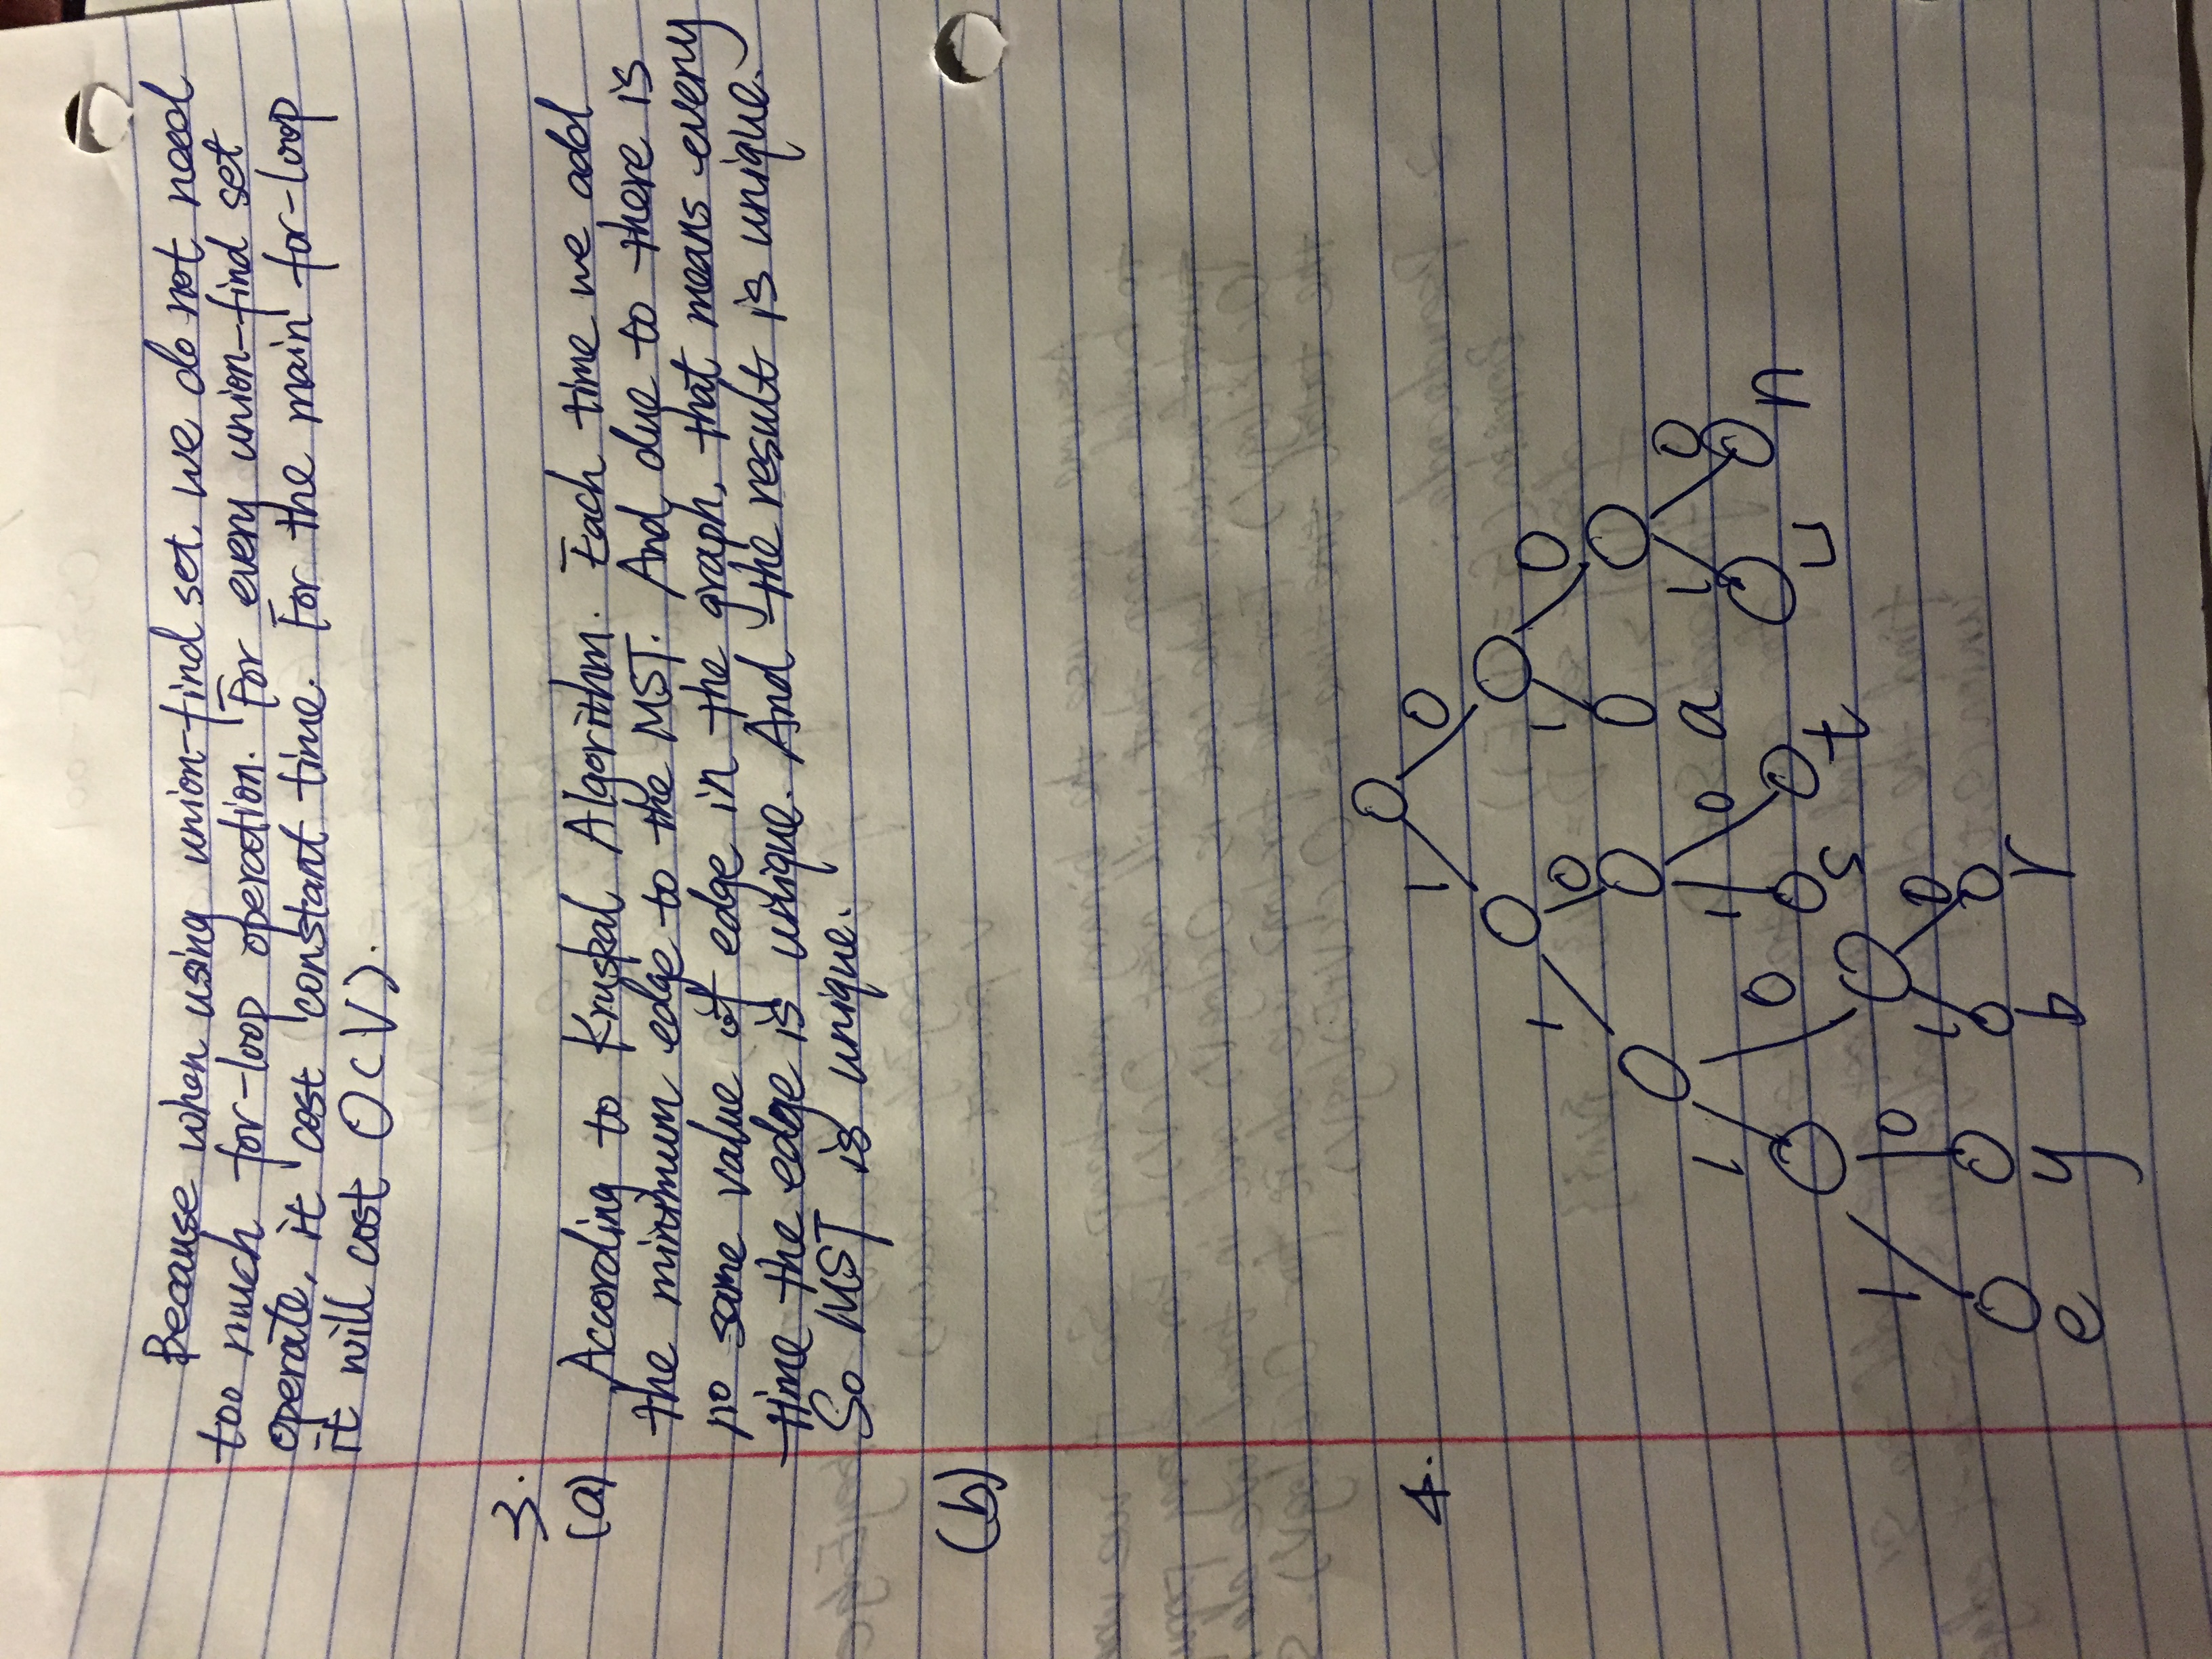 Because when using union-find set. we do not need
too much for-loop operation. For every union-find set
operate, it cost constant time. For the main for-loop
it will cost O(V).
3.
(a) According to Kruskal Algorithm. Each time we add
the minimum edge to the MST. And due to there is
no same value of edge in the graph, that means every
time the edge is unique. And the result is unique.
So MST is unique.
(b)
4.
1 0
1 0 1 0
1 0 1 0 a 1 0
s t u n
1 0 1 0
e y b r